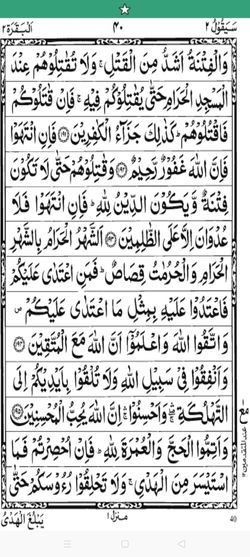 سَيَقُوْلُ ٢ ٤٠ اَلْبَقَرَة ٢
وَالْفِتْنَةُ اَشَدُّ مِنَ الْقَتْلِ ۚ وَلَا تُقٰتِلُوْهُمْ عِنْدَ
الْمَسْجِدِ الْحَرَامِ حَتّٰى يُقٰتِلُوْكُمْ فِيْهِ ۚ فَاِنْ قٰتَلُوْكُمْ
فَاقْتُلُوْهُمْ ؕ كَذٰلِكَ جَزَآءُ الْكٰفِرِيْنَ ﴿۱۹۱﴾ فَاِنِ انْتَهَوْا
فَاِنَّ اللّٰهَ غَفُوْرٌ رَّحِيْمٌ ﴿۱۹۲﴾ وَقٰتِلُوْهُمْ حَتّٰى لَا تَكُوْنَ
فِتْنَةٌ وَّيَكُوْنَ الدِّيْنُ لِلّٰهِ ؕ فَاِنِ انْتَهَوْا فَلَا
عُدْوَانَ اِلَّا عَلَى الظّٰلِمِيْنَ ﴿۱۹۳﴾ اَلشَّهْرُ الْحَرَامُ بِالشَّهْرِ
الْحَرَامِ وَالْحُرُمٰتُ قِصَاصٌ ؕ فَمَنِ اعْتَدٰى عَلَيْكُمْ
فَاعْتَدُوْا عَلَيْهِ بِمِثْلِ مَا اعْتَدٰى عَلَيْكُمْ ۪
وَاتَّقُوا اللّٰهَ وَاعْلَمُوْۤا اَنَّ اللّٰهَ مَعَ الْمُتَّقِيْنَ ﴿۱۹۴﴾
وَاَنْفِقُوْا فِيْ سَبِيْلِ اللّٰهِ وَلَا تُلْقُوْا بِاَيْدِيْكُمْ اِلَى
التَّهْلُكَةِ ۛۚ وَاَحْسِنُوْا ۛۚ اِنَّ اللّٰهَ يُحِبُّ الْمُحْسِنِيْنَ ﴿۱۹۵﴾
وَاَتِمُّوا الْحَجَّ وَالْعُمْرَةَ لِلّٰهِ ؕ فَاِنْ اُحْصِرْتُمْ فَمَا
اسْتَيْسَرَ مِنَ الْهَدْيِ ۚ وَلَا تَحْلِقُوْا رُءُوْسَكُمْ حَتّٰى
مع عند المتقدمين
منزل ١
يَبْلُغَ الْهَدْيُ
40